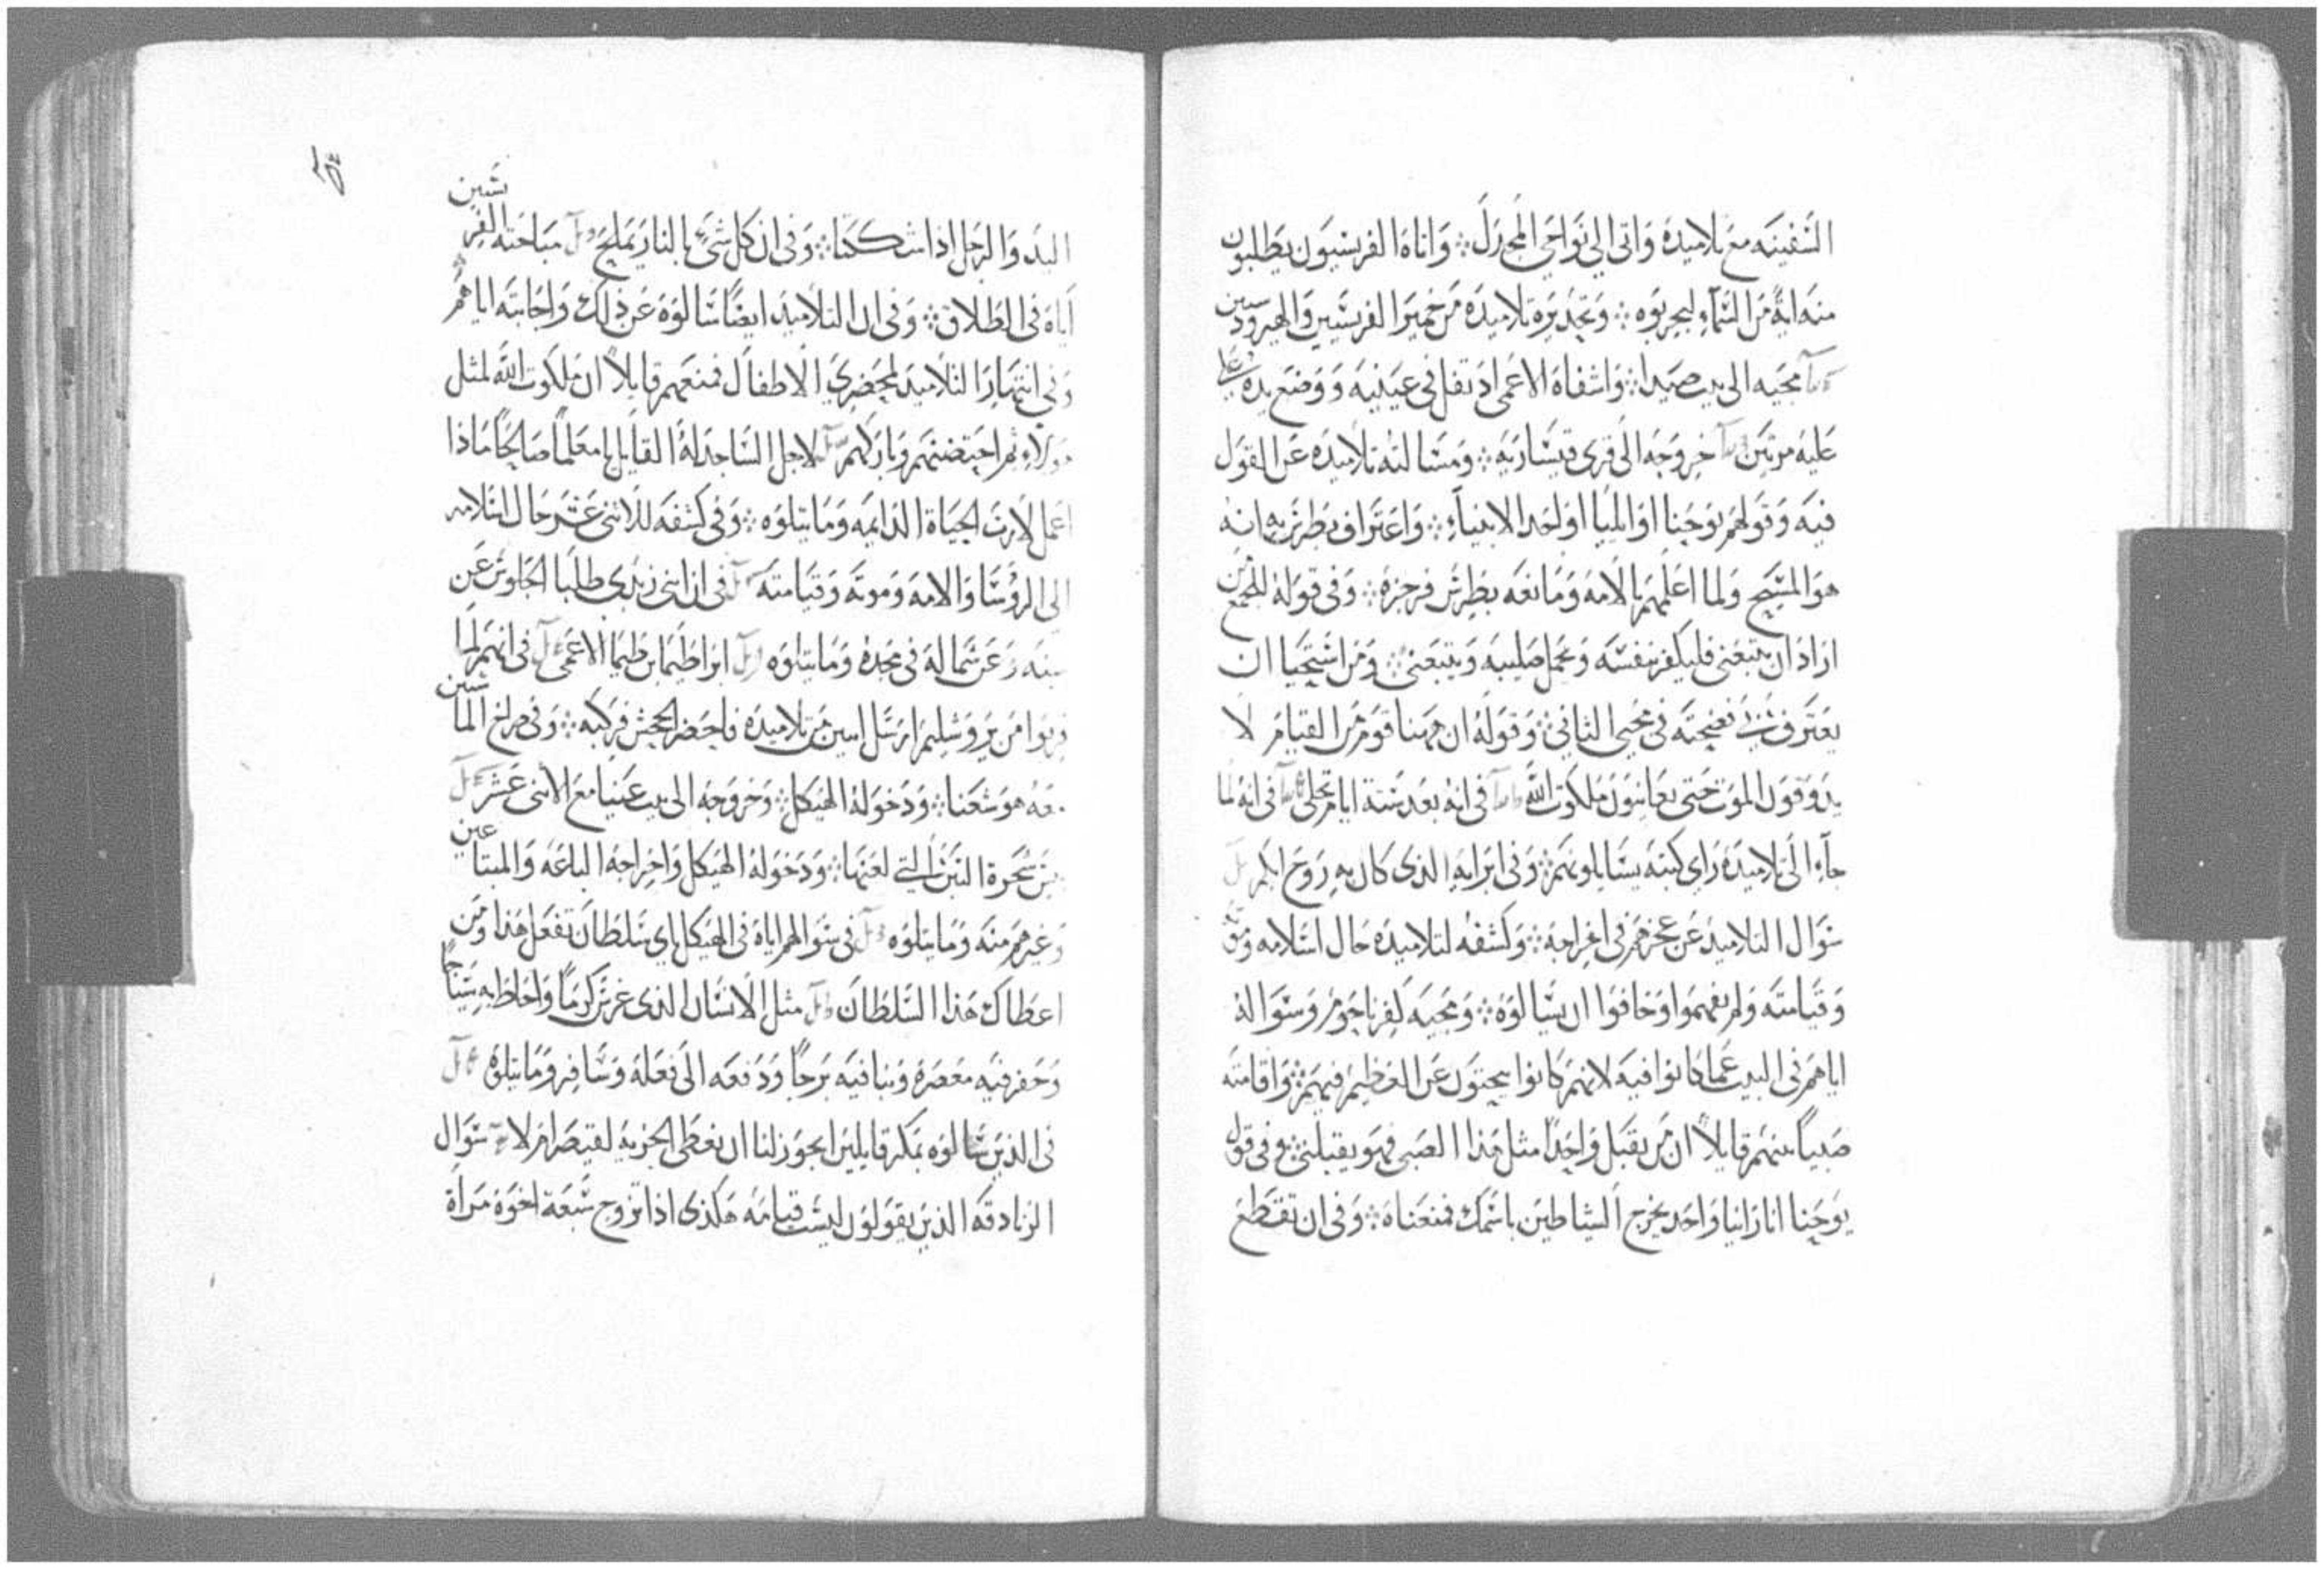 السفينه مع تلاميده واتى الي نواحي المجدل ❖ واتاه الفريسيون يطلبون
منه اية من السماء ليجربوه ❖ وتحذيره تلاميده من خمير الفريسيين والهيرودسيين
مجيه الى بيت صيدا ❖ واشفاه الاعمى اذ تفل في عينيه ووضع يده
عليه مرتين خروجه الى قرى قيساريه ❖ ومسالته تلاميده عن القول
فيه وقولهم يوحنا او ايليا او احد الانبياء ❖ واعتراف بطرس به انه
هو المسيح ولما اعلمهم بالامه ومانعه بطرس فزجزه ❖ وفي قوله للجمع من
اراد ان يتبعني فليكفر بنفسه ويحمل صليبه ويتبعني ❖ ومن استحيا ان
يعترف بي نفضحته في مجيي الثاني ❖ وقوله ان ههنا قوم من القيام لا
يدوقون الموت حتى يعاينون ملكوت الله في انه بعد ستة ايام تجلى في انه لما
جاء الى تلاميده راي كتبه يسايلونهم ❖ وفي ابرايه الذي كان به روح ابكم
سوال التلاميد عن عجزهم في اخراجه ❖ وكشفه لتلاميده حال اسلامه وموته
وقيامته ولم يفهموا وخافوا ان يسالوه ❖ ومجيه كفرناحوم وسواله
اياهم في البيت عما كانوا فيه لانهم كانوا يبحثون عن العظيم فيهم ❖ واقامته
صبياً بينهم قايلاً ان من يقبل واحداً مثل هذا الصبي فهو يقبلني ❖ وفي قول
يوحنا انا راينا واحد يخرج الشياطين باسمك فمنعناه ❖ وفي ان تقتطع
اليد والرجل اذا شككتا ❖ وفي ان كل شيء بالنار يملح مباحثه الفريسيين
اياه في الطلاق ❖ وفي ان التلاميد ايضاً سالوه عن ذلك واجابته اياهم
وفي انتهار التلاميد لمحضري الاطفال فمنعهم قايلاً ان ملكوت الله لمثل
هولاء ثم احتضنهم وباركهم لاجل الساجد له القايل يا معلماً صالحاً ماذا
اعمل لارث الحياة الدايمه وما يتلوه ❖ وفي كشفه للاثني عشر حال اسلامه
الى الروسا والامه وموته وقيامته في ان ابني زبدي طلبا الجلوس عن
يمينه وعن شماله في مجده وما يتلوه ابراطيما بن طيما الاعمى في انهم لما
قربوا من يروشليم ارسل اثنين من تلاميده فاحضر الجحش فركبه ❖ وفي صراخ الماشين
معه هوشعنا ❖ ودخوله الهيكل ❖ وخروجه الى بيت عنيا مع الاثني عشر
يبس شجرة التين التي لعنها ❖ ودخوله الهيكل واخراجه الباعه والمبتاعين
وغيرهم منه وما يتلوه في سوالهم اياه في الهيكل باي سلطان تفعل هذا ومن
اعطاك هذا السلطان مثل الانسان الذي غرس كرماً واحاط به سياجاً
وحفر فيه معصرة وبنا فيه برجاً ودفعه الى فعله وسافر وما يتلوه
في الذين سالوه بمكر قايلين ايجوز لنا ان نعطى الجزيه لقيصر ام لا سوال
الزنادقه الذين يقولون ليست قيامه هكذى اذا تزوج سبعة اخوة مراة